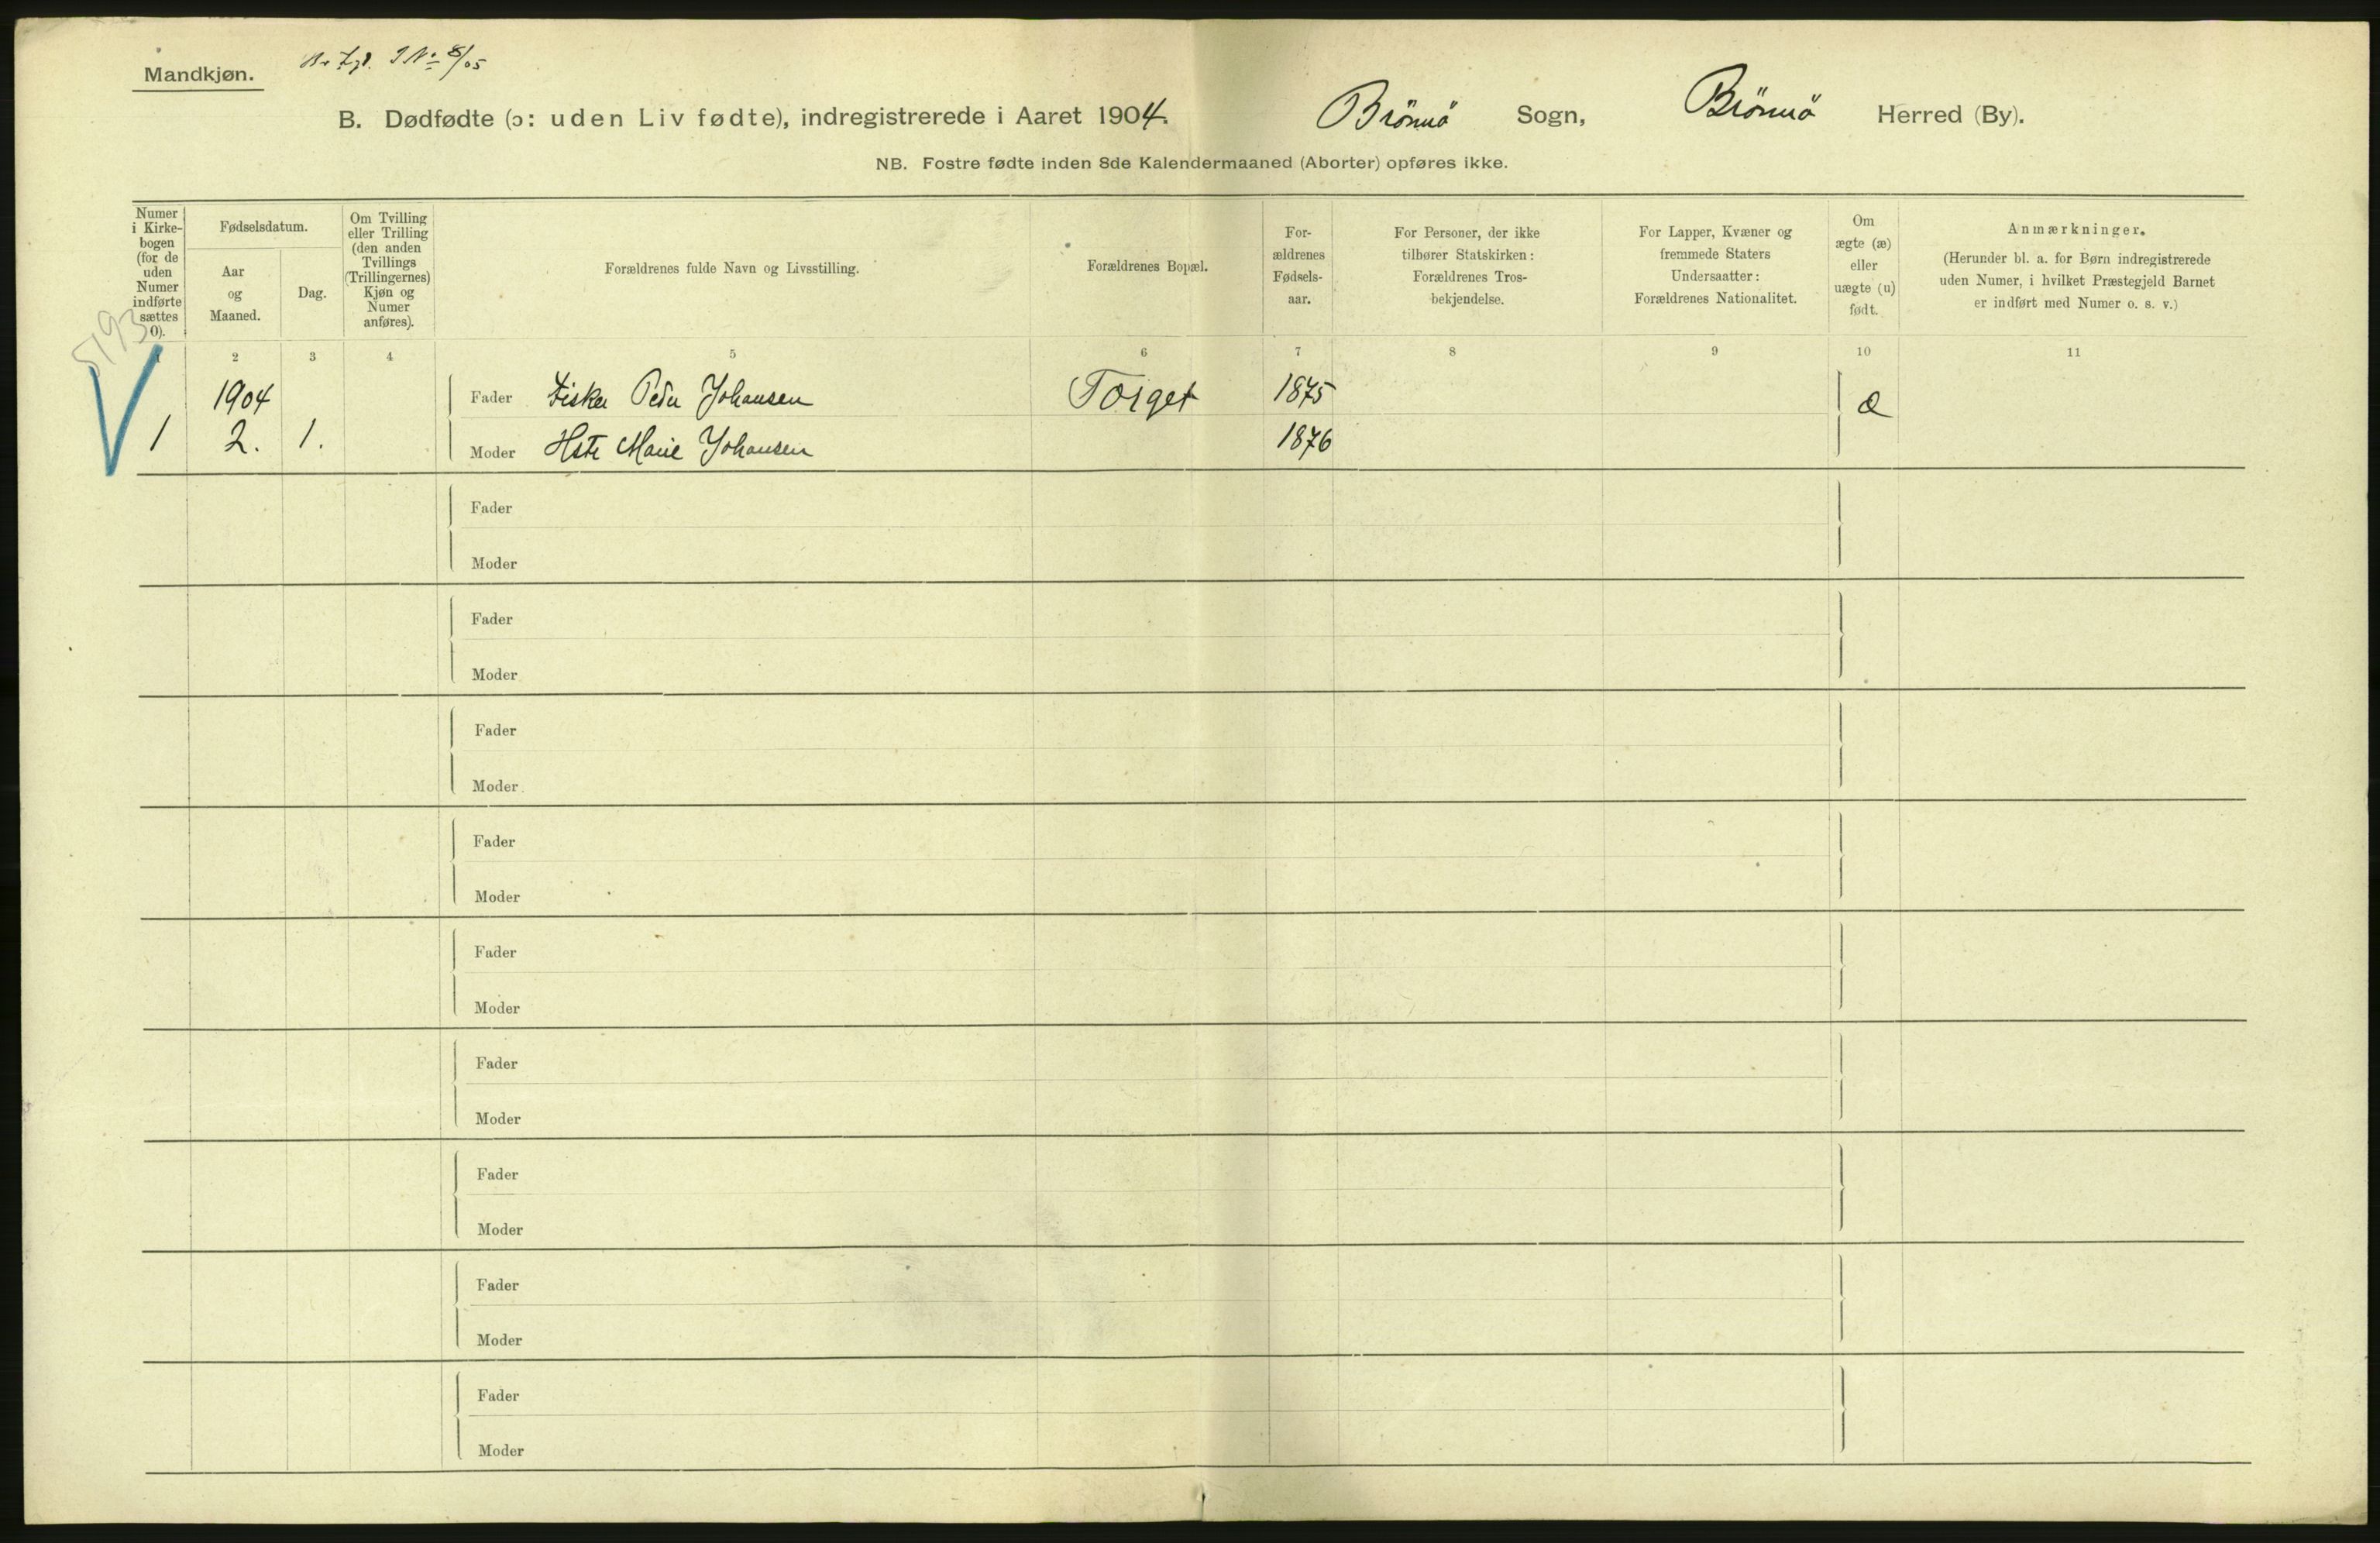 Mandkjøn.
J No 8/05
B. Dødfødte (ɔ: uden Liv fødte), indregistrerede i Aaret 1904. Brönnö Sogn, Brönnö Herred (By).
NB. Fostre fødte inden 8de Kalendermaaned (Aborter) opføres ikke.
Numer
i Kirke-
bogen
(for de
uden
Numer
indførte
sættes
0).
Fødselsdatum.
Aar
og
Maaned.
Dag.
Om Tvilling
eller Trilling
(den anden
Tvillings
(Trillingernes)
Kjøn og
Numer
anføres).
Forældrenes fulde Navn og Livsstilling.
Forældrenes Bopæl.
For-
ældrenes
Fødsels-
aar.
For Personer, der ikke
tilhører Statskirken:
Forældrenes Tros-
bekjendelse.
For Lapper, Kvæner og
fremmede Staters
Undersaatter:
Forældrenes Nationalitet.
Om
ægte (æ)
eller
uægte (u)
født.
Anmærkninger.
(Herunder bl. a. for Børn indregistrerede
uden Numer, i hvilket Præstegjeld Barnet
er indført med Numer o. s. v.)
5193
1 2 3 4 5 6 7 8 9 10 11
1904 Fader Fisker Peder Johansen Torget 1875 æ
1 2. 1. Moder Hstr Marie Johansen 1876
Fader
Moder
Fader
Moder
Fader
Moder
Fader
Moder
Fader
Moder
Fader
Moder
Fader
Moder
Fader
Moder
Fader
Moder